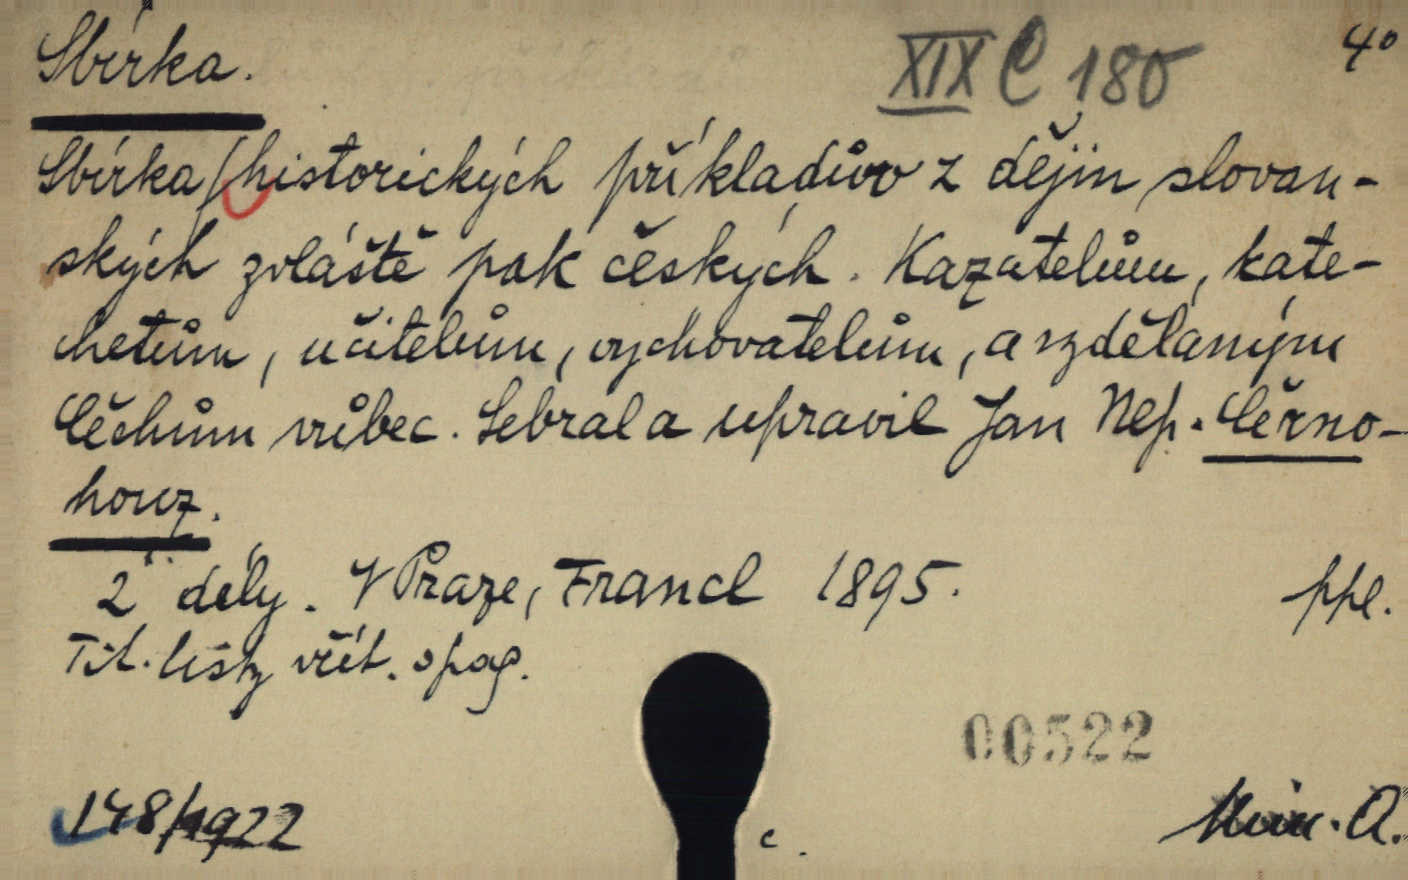 Sbírka.
XIX C 180
4°
Sbírka historických příkladův z dějin slovan-
ských zvláště pak českých. Kazatelům, kate-
chetům, učitelům, vychovatelům, a vzdělaným
Čechům vůbec. Sebral a upravil Jan Nep. Černo-
houz.
2 díly. V Praze, Francl 1895.
ppl.
Tit. listy včít. spag.
00522
148/1922
c.